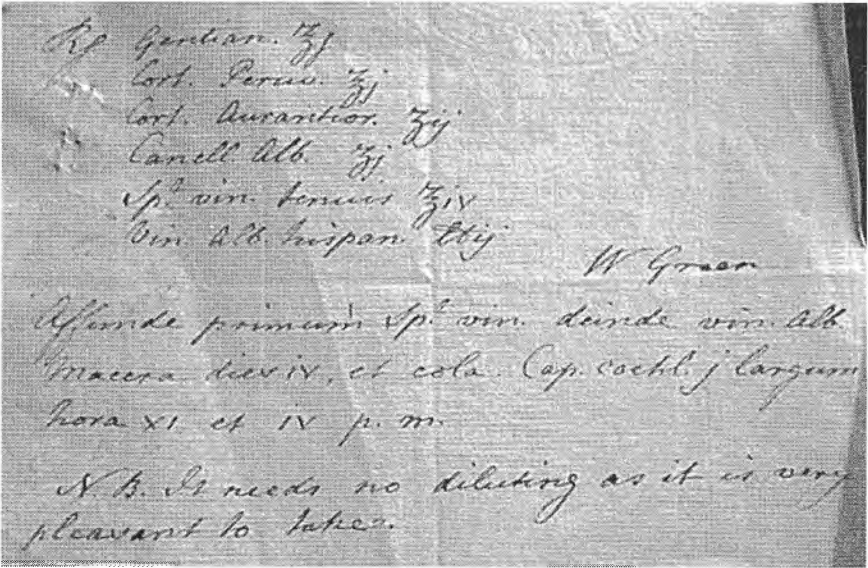 Rx Gentian. ℥j
Cort. Peruv. ℥j
Cort. Aurantior. ℥ij
Canell Alb. ℥j
Spt. vin. tenuis ℥iv
Vin Alb. hispan. ℔ij
W Green
Affunde primum Spt. vin. deinde vin. Alb.
Macera dies iv, et cola. Cap. cochl. j largum
hora XI et IV p. m.
N.B. It needs no diluting as it is very
pleasant to take.